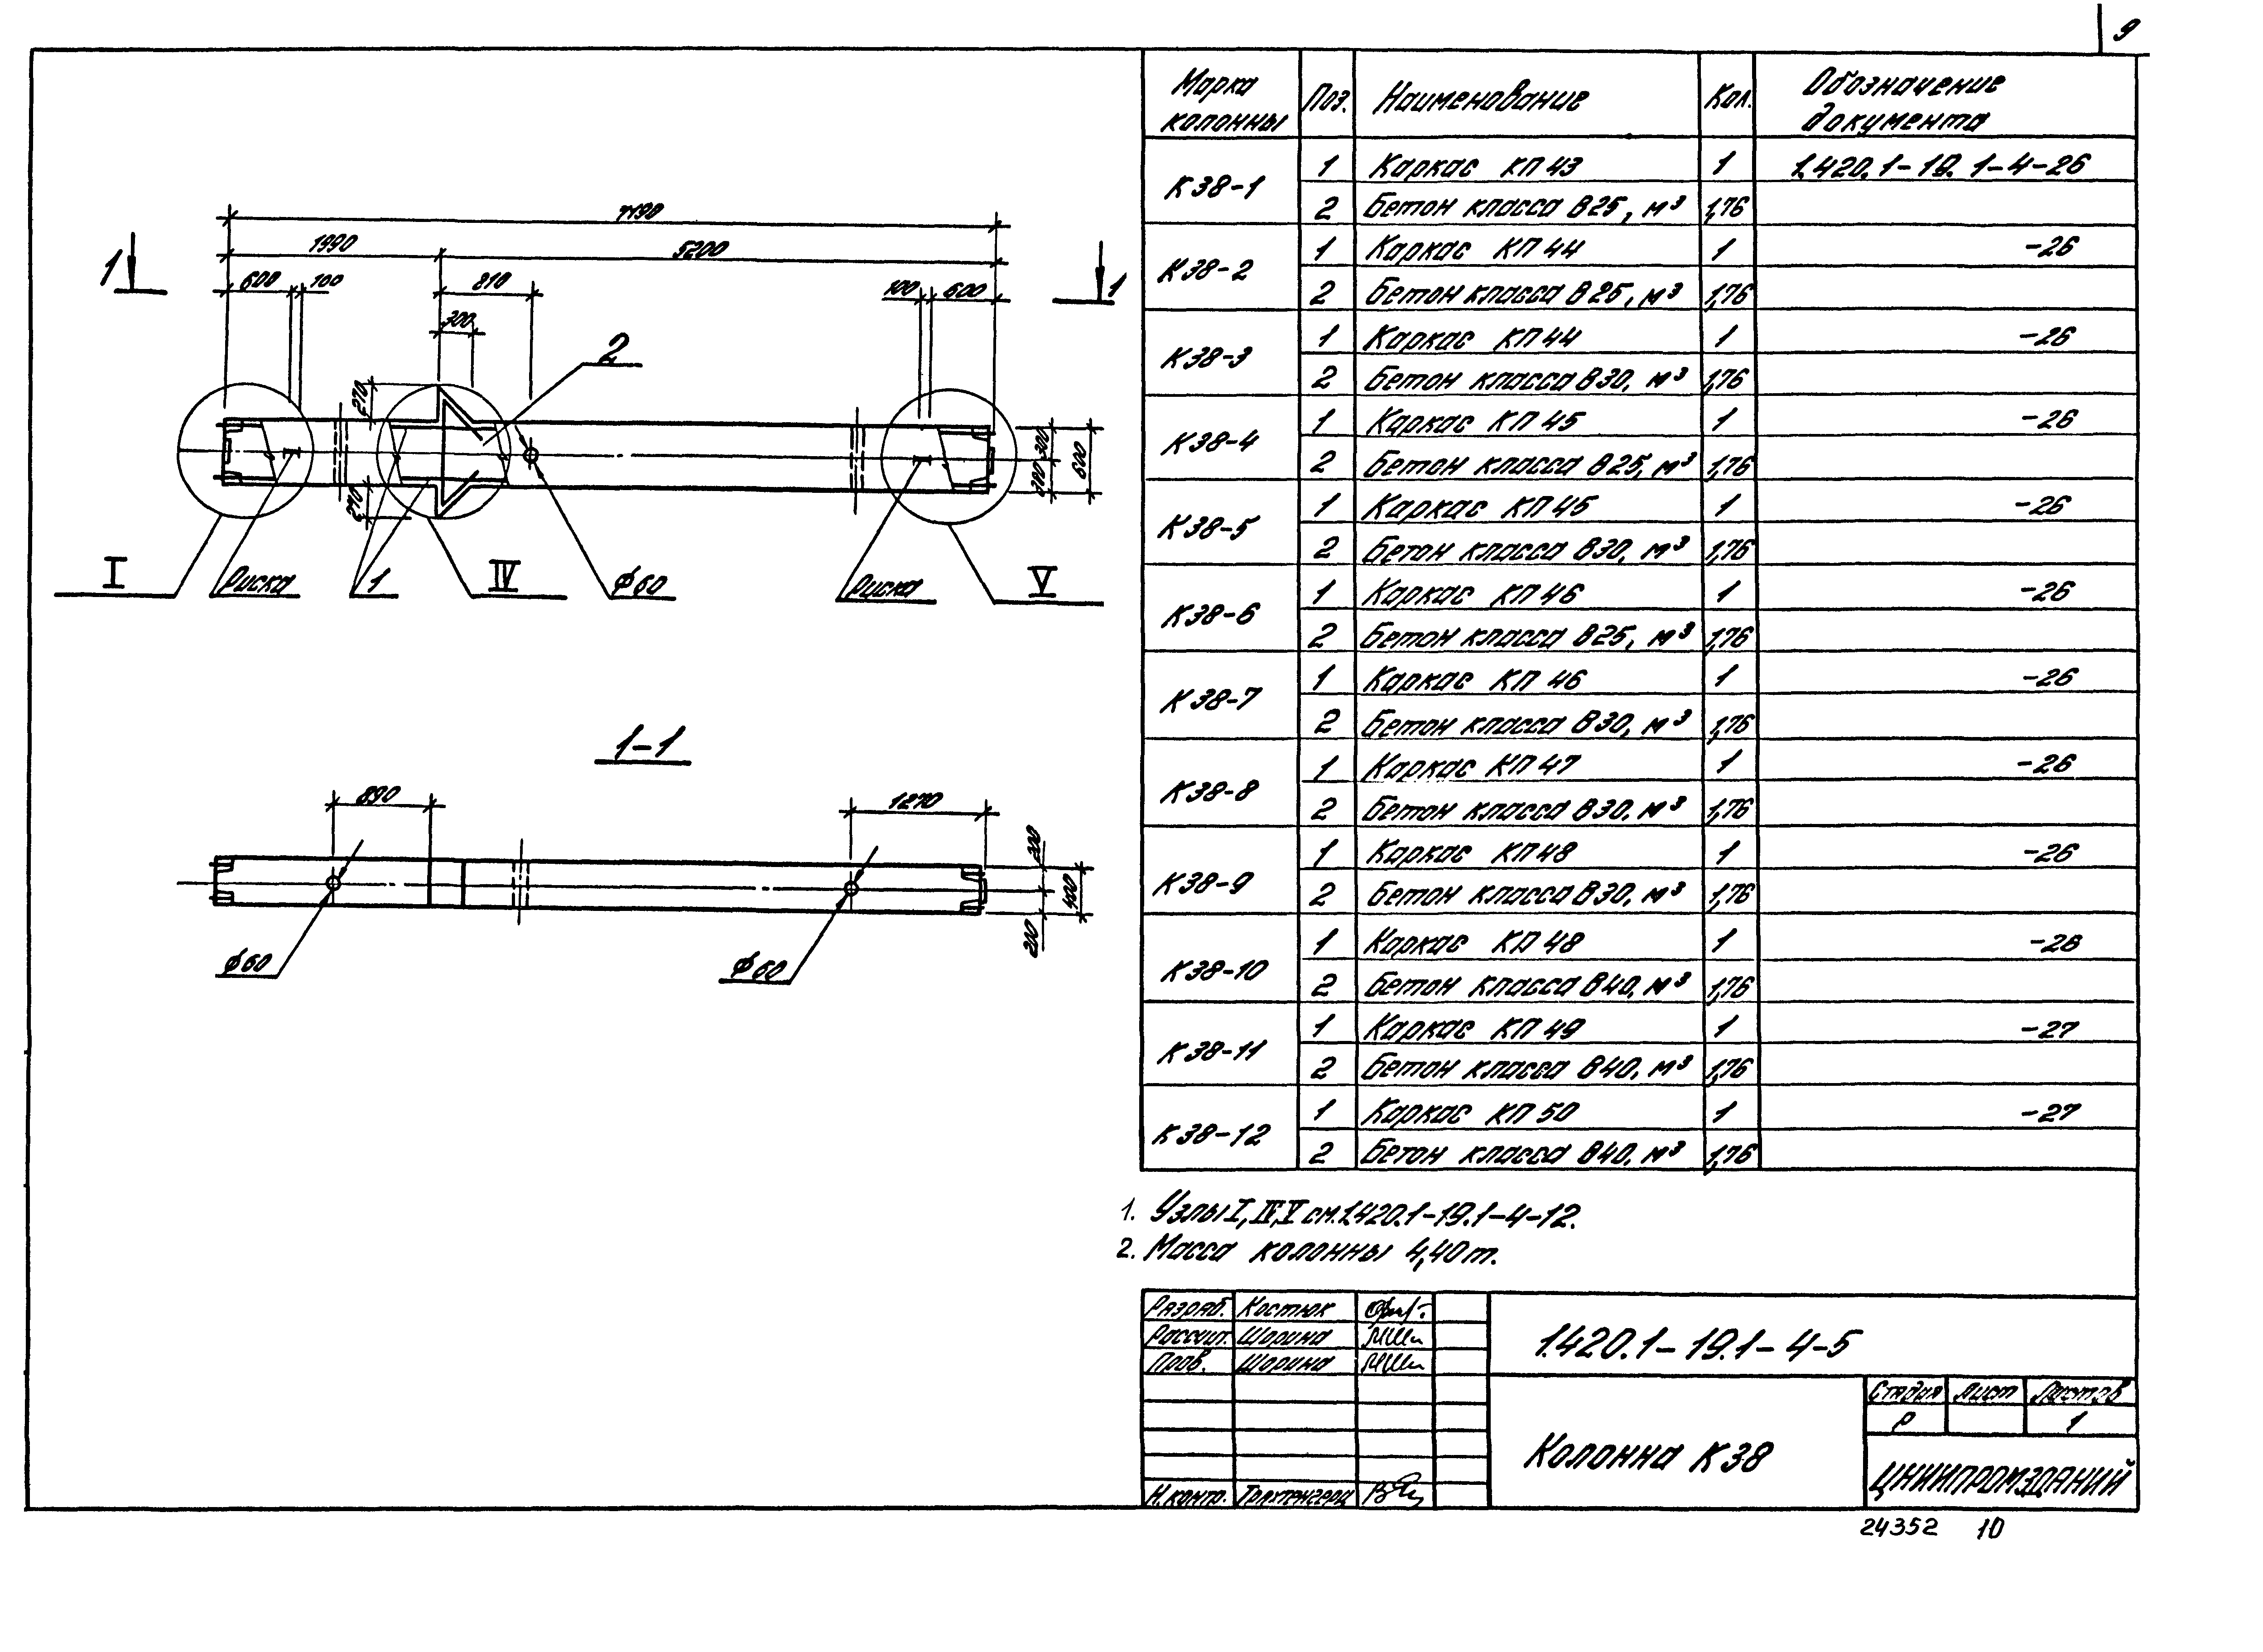 9
7190
1990
5200
600
100
810
300
100
600
1
1
2
270
270
300
300
600
I
Риска
1
IV
Ф60
Риска
V
1-1
890
1270
200
200
400
Ф60
Ф60
Марка колонны
Поз.
Наименование
Кол.
Обозначение документа
К38-1
1 Каркас КП43 1 1.420.1-19.1-4-26
2 Бетон класса В25, м³ 1,76
К38-2
1 Каркас КП44 1 -26
2 Бетон класса В25, м³ 1,76
К38-3
1 Каркас КП44 1 -26
2 Бетон класса В30, м³ 1,76
К38-4
1 Каркас КП45 1 -26
2 Бетон класса В25, м³ 1,76
К38-5
1 Каркас КП45 1 -26
2 Бетон класса В30, м³ 1,76
К38-6
1 Каркас КП46 1 -26
2 Бетон класса В25, м³ 1,76
К38-7
1 Каркас КП46 1 -26
2 Бетон класса В30, м³ 1,76
К38-8
1 Каркас КП47 1 -26
2 Бетон класса В30, м³ 1,76
К38-9
1 Каркас КП48 1 -26
2 Бетон класса В30, м³ 1,76
К38-10
1 Каркас КП48 1 -26
2 Бетон класса В40, м³ 1,76
К38-11
1 Каркас КП49 1 -27
2 Бетон класса В40, м³ 1,76
К38-12
1 Каркас КП50 1 -27
2 Бетон класса В40, м³ 1,76
1. Узлы I, IV, V см. 1.420.1-19.1-4-12.
2. Масса колонны 4,40т.
Разраб. Костюк
Рассчит. Шорина
Пров. Шорина
Н.контр.
1.420.1-19.1-4-5
Колонна К38
Стадия Лист Листов
Р 1
ЦНИИПРОМЗДАНИЙ
24352 10